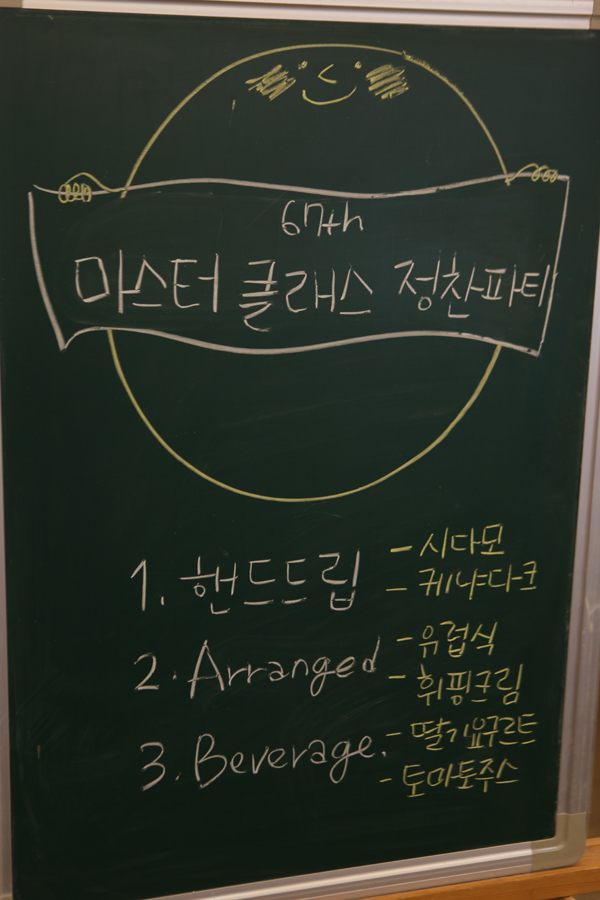 67th
마스터 클래스 정찬파티
1. 핸드드립 - 시다모
- 케냐다크
2. Arranged - 유럽식
- 휘핑크림
3. Beverage. - 딸기요구르트
- 토마토주스